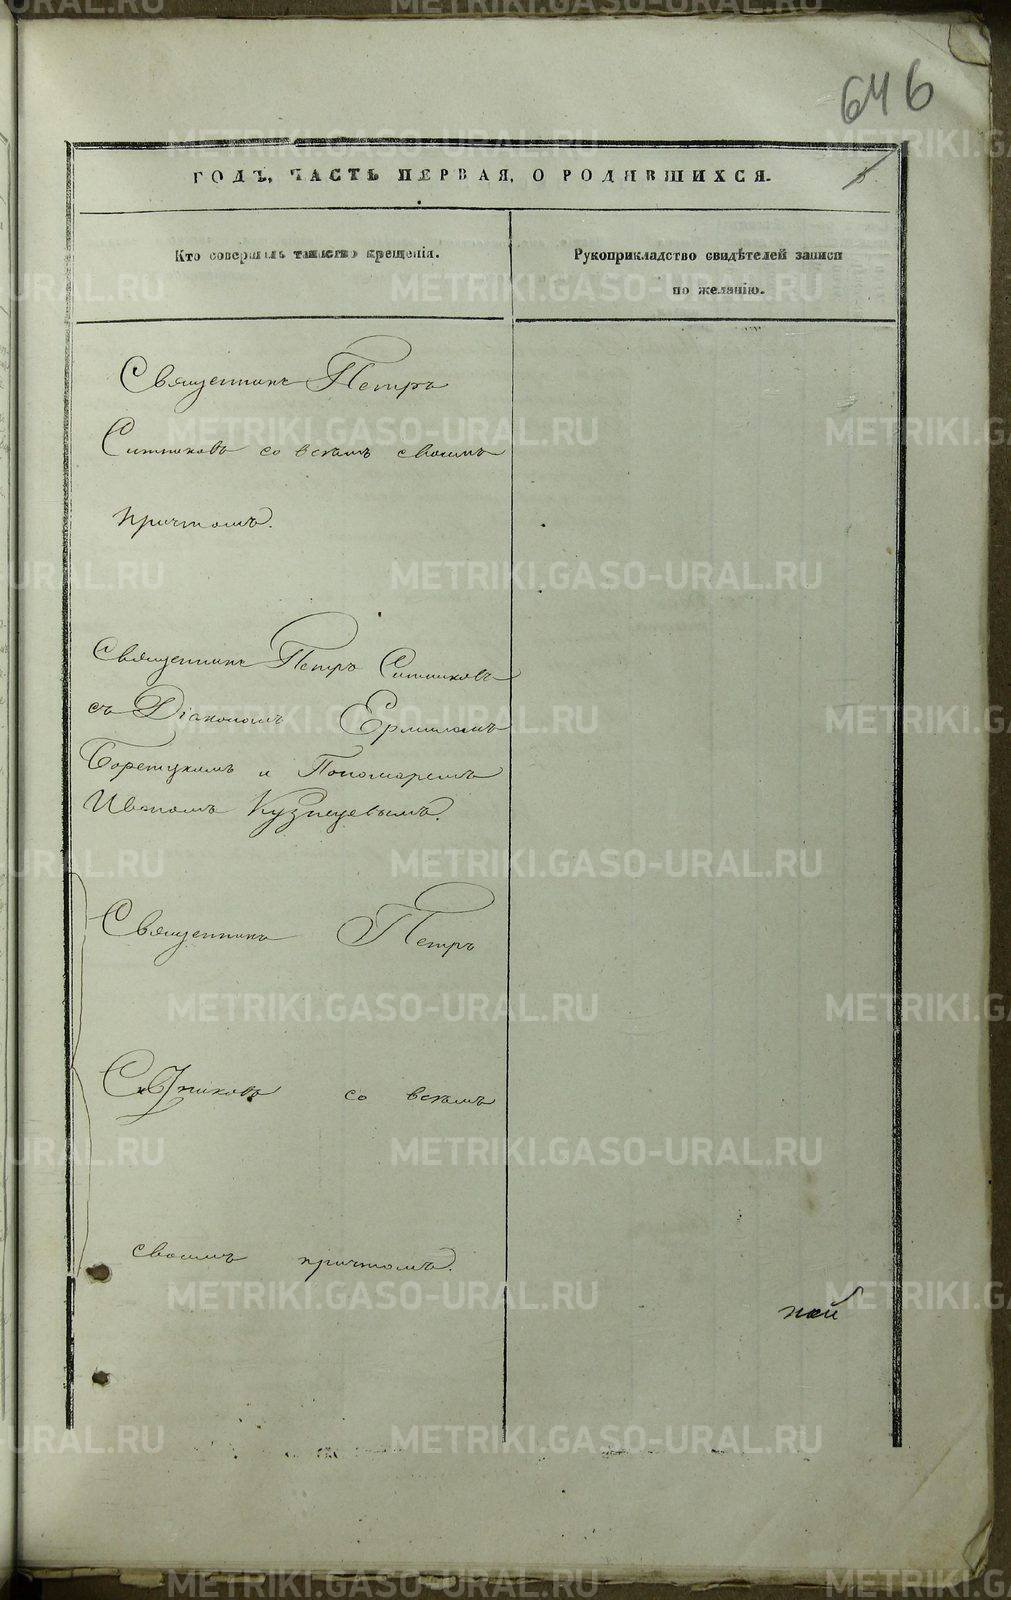 646
ГОДЪ, ЧАСТЬ ПЕРВАЯ, О РОДИВШИХСЯ.
Кто совершалъ таинство крещенія.
Рукоприкладство свидѣтелей записи
по желанію.
Священникъ Петръ
Ситниковъ со всѣмъ своимъ
причтомъ.
Священникъ Петръ Ситниковъ
съ Діакономъ Ермиломъ
Борецкимъ и Пономаремъ
Иваномъ Кузнецевымъ.
Священникъ Петръ
Ситниковъ со всѣмъ
своимъ причтомъ.
ной
METRIKI.GASO-URAL.RU